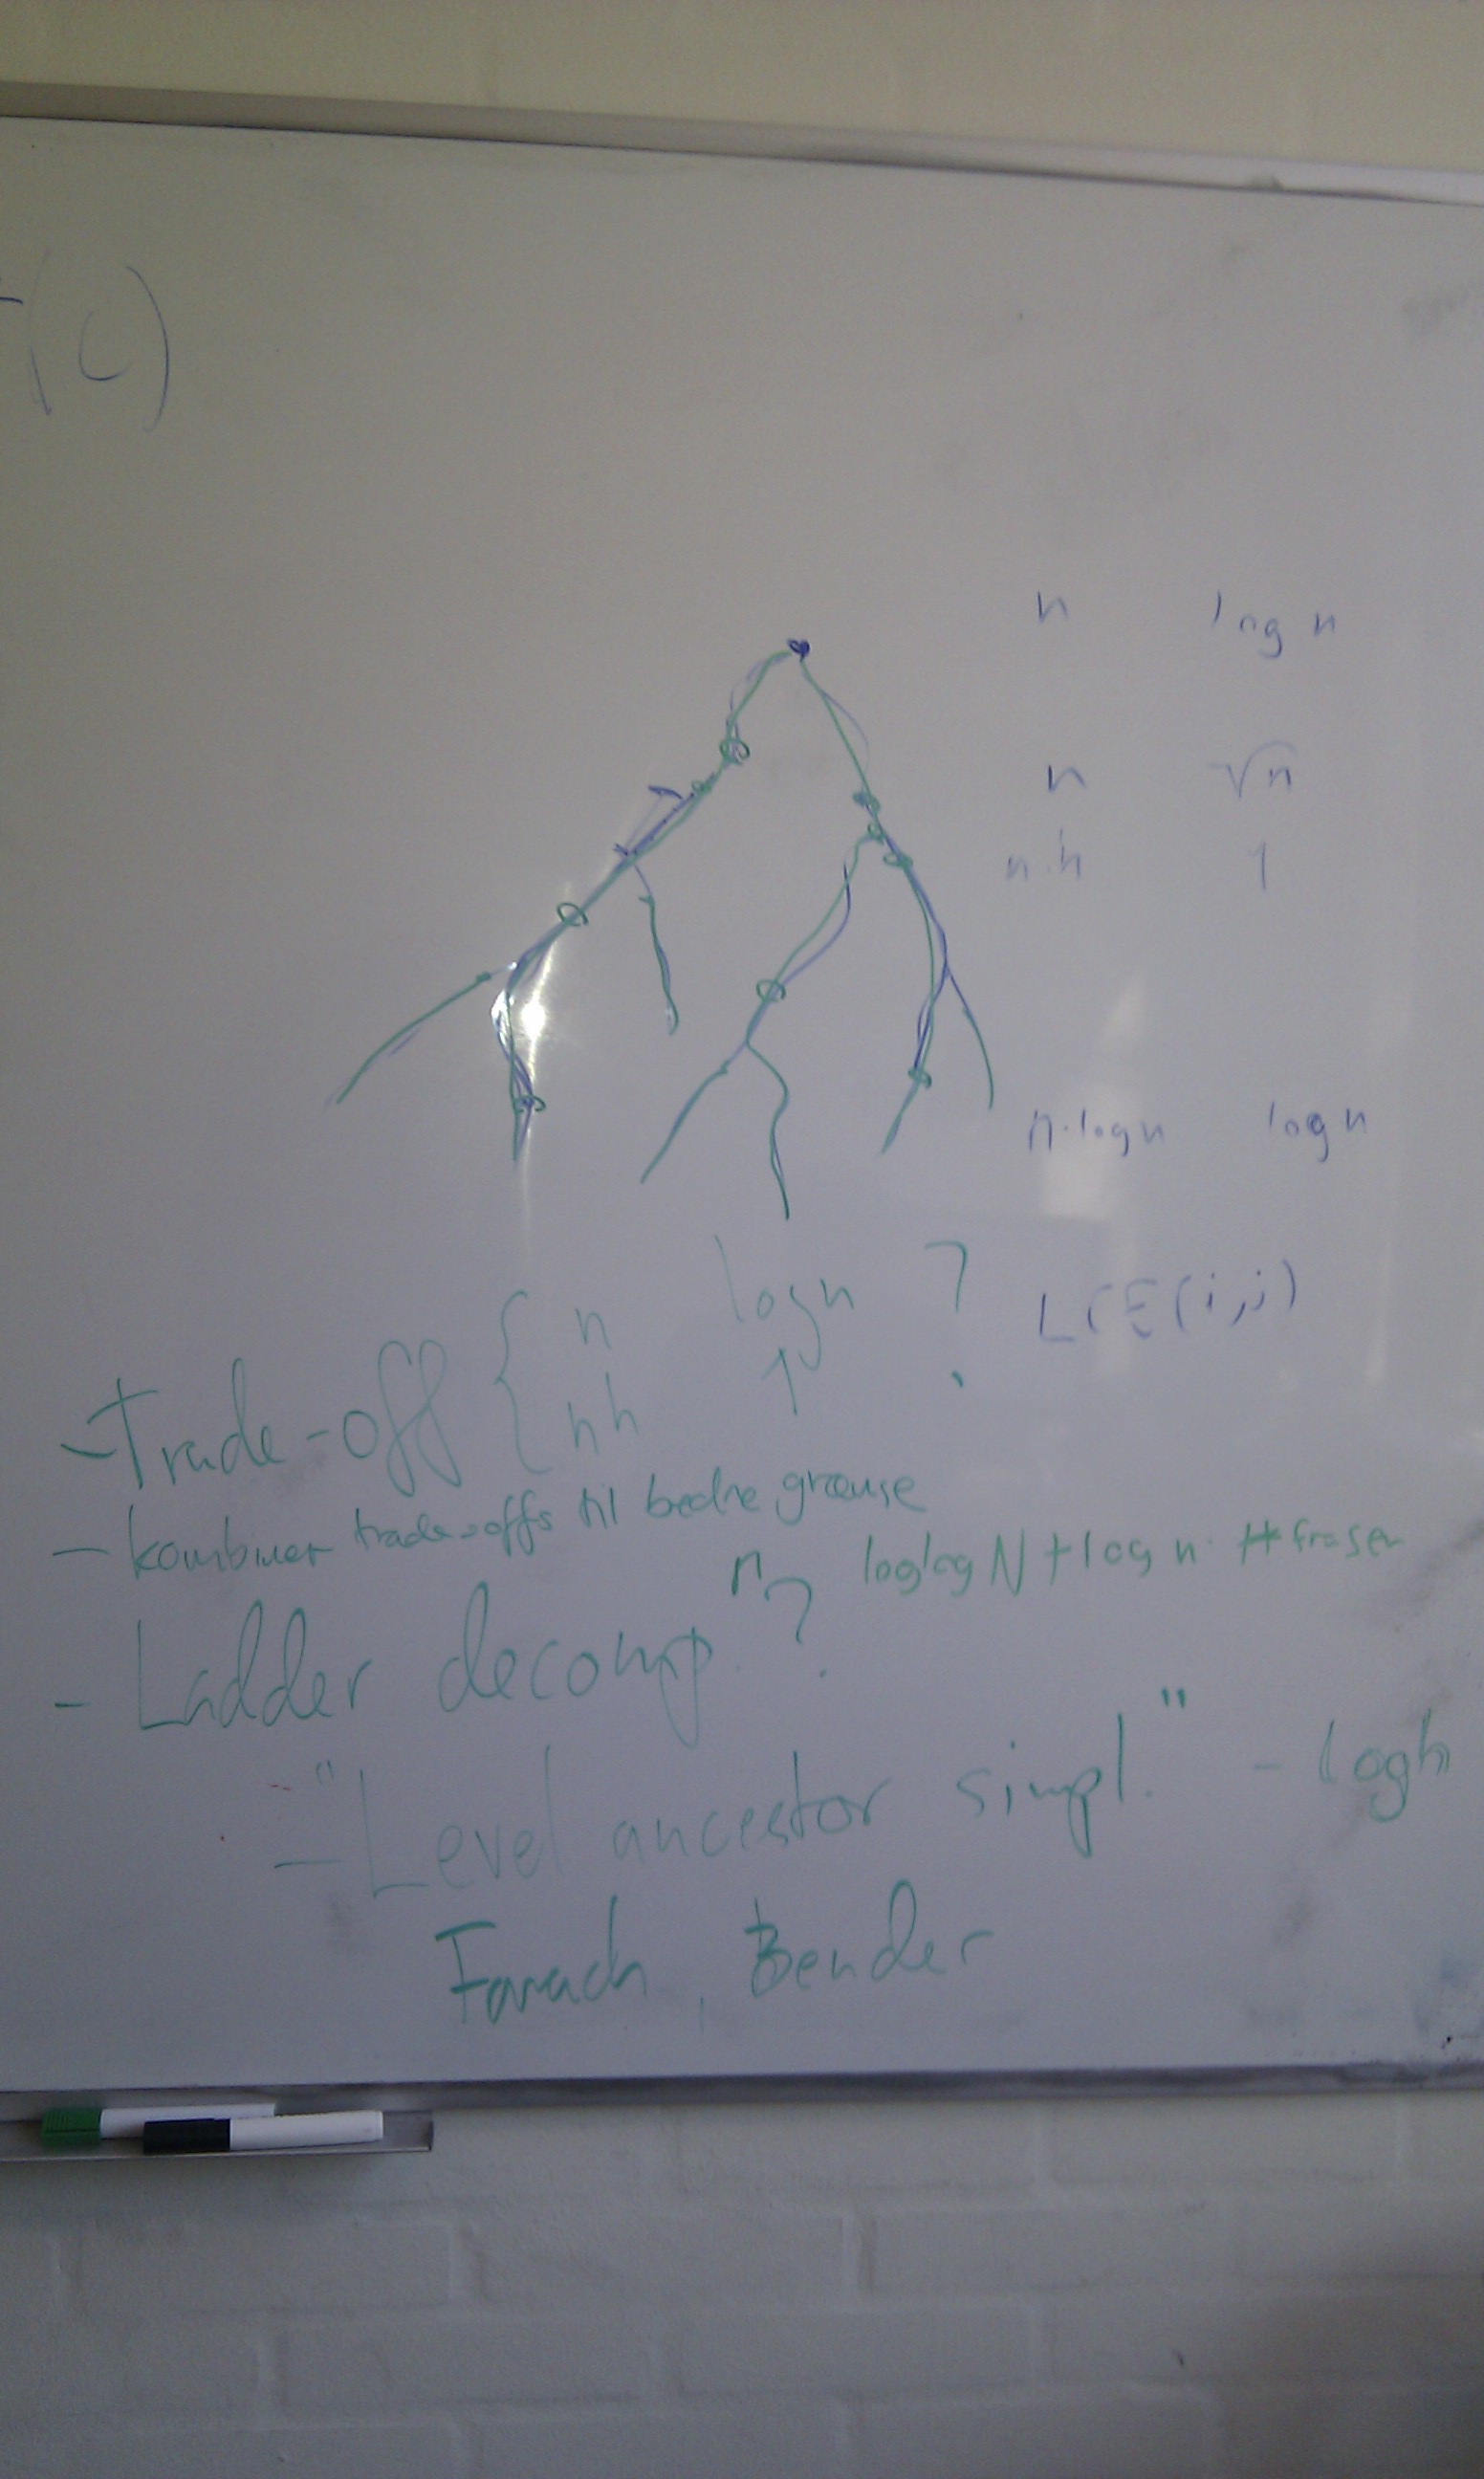 (C)
n log n
n √n
n·h 1
n·log n log n
LCE(i,j)
- Trade-off { n log n ?
nh 1
- kombiner trade-offs til bedre grænse
n loglog N + log n · # fraser
- Ladder decomp ?
- "Level ancestor simpl." - log h
Farach, Bender